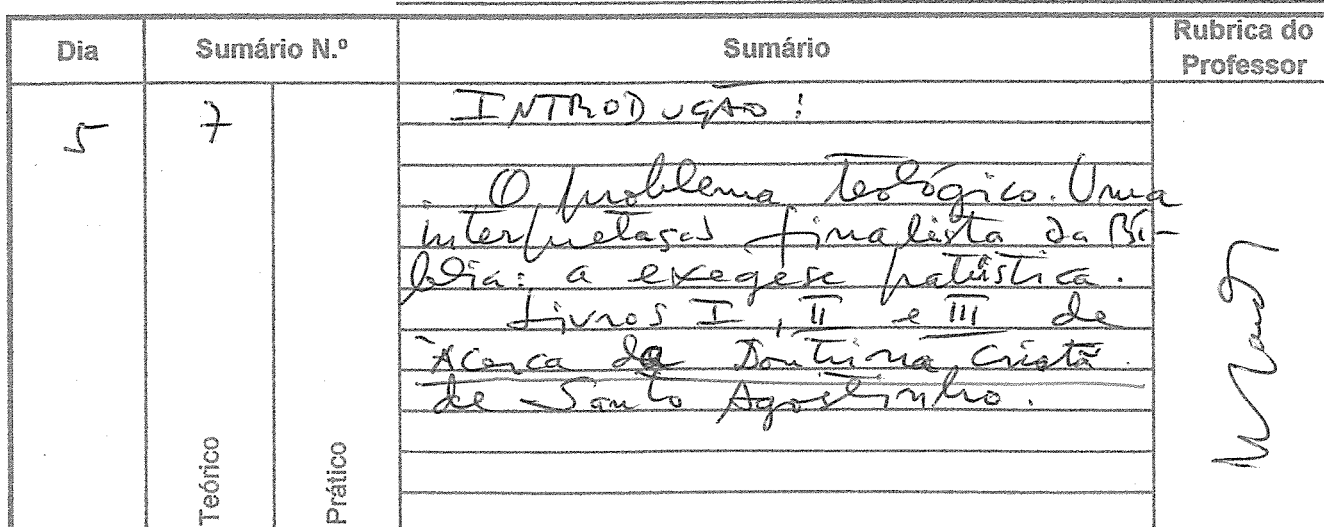 Dia Sumário N.º Sumário Rubrica do Professor
5 7 INTRODUÇÃO:
O problema teológico. Uma
interpretação finalista da Bí-
blia: a exegese patrística.
Livros I, II e III de
Acerca da Doutrina Cristã
de Santo Agostinho.
Teórico
Prático